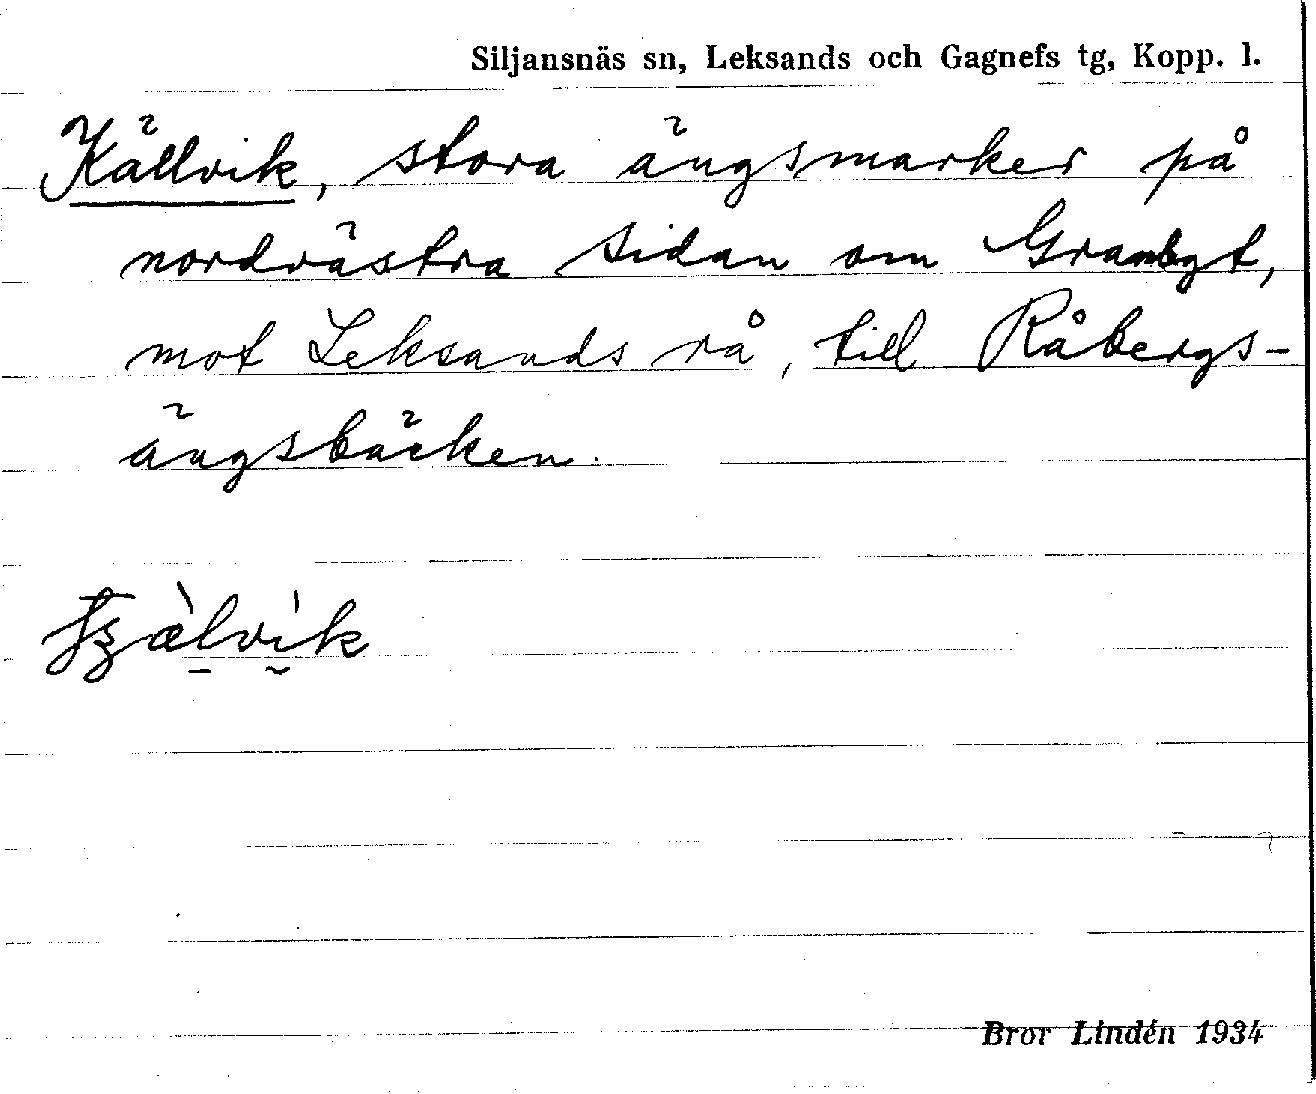 Siljansnäs sn, Leksands och Gagnefs tg, Kopp. l.
Källvik, stora ängsmarker på
nordvästra sidan om Granbgt,
mot Leksands rå, till Råbergs-
ängsbäcken.
Bror Lindén 1934